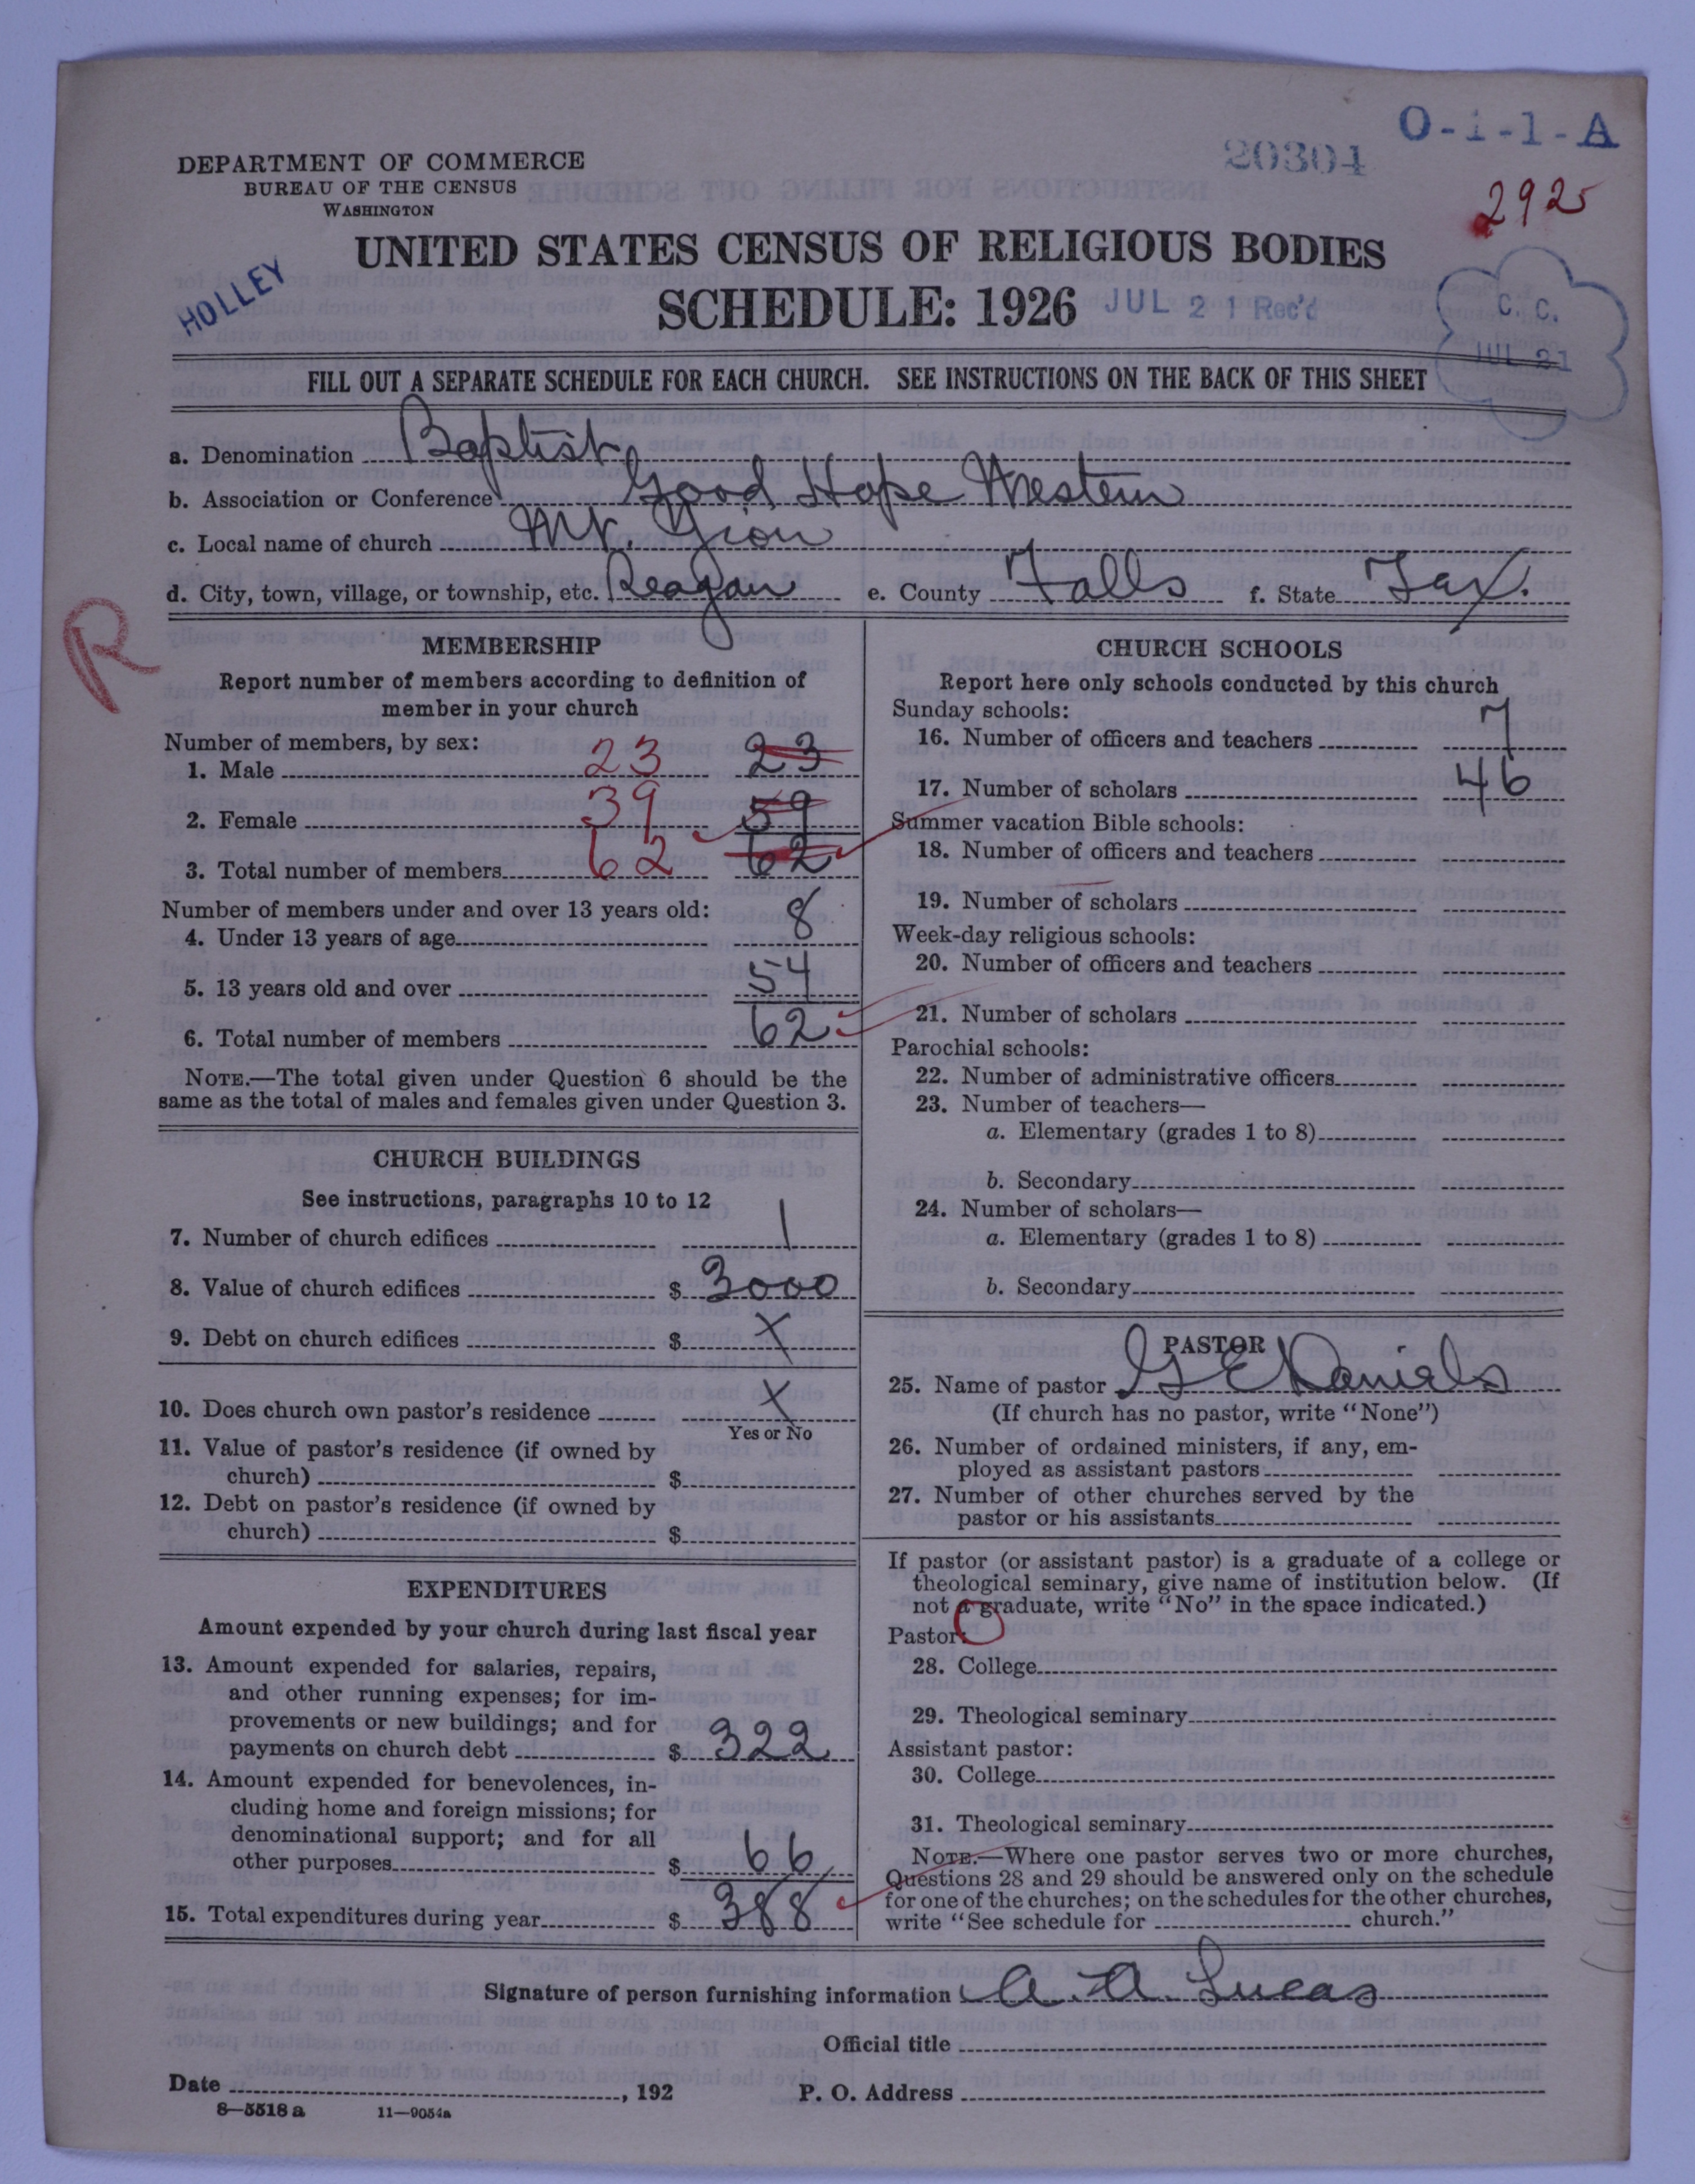 O-1-1-A
20304
2925
DEPARTMENT OF COMMERCE
BUREAU OF THE CENSUS
WASHINGTON
UNITED STATES CENSUS OF RELIGIOUS BODIES
HOLLEY
SCHEDULE: 1926 JUL 21 Rec'd
C. C.
JUL 21
FILL OUT A SEPARATE SCHEDULE FOR EACH CHURCH. SEE INSTRUCTIONS ON THE BACK OF THIS SHEET
a. Denomination Baptist
b. Association or Conference Good Hope Western
c. Local name of church Mt. Zion
d. City, town, village, or township, etc. Reagan e. County Falls f. State Tex.
R
MEMBERSHIP
Report number of members according to definition of
member in your church
Number of members, by sex:
1. Male 23 23
2. Female 39 59
3. Total number of members 62 62
Number of members under and over 13 years old:
4. Under 13 years of age 8
5. 13 years old and over 54
6. Total number of members 62
NOTE.—The total given under Question 6 should be the
same as the total of males and females given under Question 3.
CHURCH BUILDINGS
See instructions, paragraphs 10 to 12
7. Number of church edifices 1
8. Value of church edifices $ 3000
9. Debt on church edifices $ X
10. Does church own pastor's residence X
Yes or No
11. Value of pastor's residence (if owned by
church) $
12. Debt on pastor's residence (if owned by
church) $
EXPENDITURES
Amount expended by your church during last fiscal year
13. Amount expended for salaries, repairs,
and other running expenses; for im-
provements or new buildings; and for
payments on church debt $ 322
14. Amount expended for benevolences, in-
cluding home and foreign missions; for
denominational support; and for all
other purposes $ 66
15. Total expenditures during year $ 388
CHURCH SCHOOLS
Report here only schools conducted by this church
Sunday schools:
16. Number of officers and teachers 7
17. Number of scholars 46
Summer vacation Bible schools:
18. Number of officers and teachers
19. Number of scholars
Week-day religious schools:
20. Number of officers and teachers
21. Number of scholars
Parochial schools:
22. Number of administrative officers
23. Number of teachers—
a. Elementary (grades 1 to 8)
b. Secondary
24. Number of scholars—
a. Elementary (grades 1 to 8)
b. Secondary
PASTOR
25. Name of pastor G E Daniels
(If church has no pastor, write "None")
26. Number of ordained ministers, if any, em-
ployed as assistant pastors
27. Number of other churches served by the
pastor or his assistants
If pastor (or assistant pastor) is a graduate of a college or
theological seminary, give name of institution below. (If
not a graduate, write "No" in the space indicated.)
Pastor:
28. College
29. Theological seminary
Assistant pastor:
30. College
31. Theological seminary
NOTE.—Where one pastor serves two or more churches,
Questions 28 and 29 should be answered only on the schedule
for one of the churches; on the schedules for the other churches,
write "See schedule for church."
Signature of person furnishing information A. A. Lucas
Official title
Date , 192 P. O. Address
8—5518 a 11—9054a